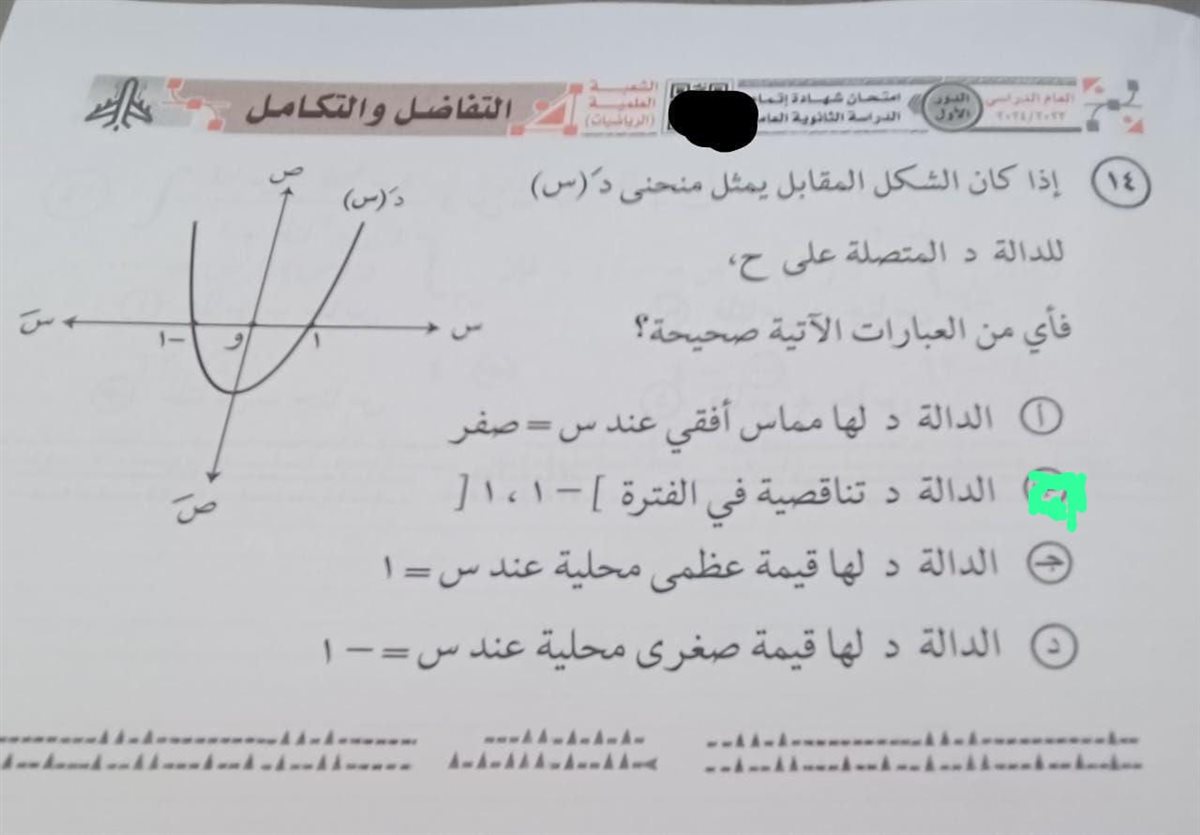 العام الدراسي
٢٠٢٤/٢٠٢٣
الدور
الأول
امتحان شهادة إتمام
الدراسة الثانوية العامة
الشعبة
العلمية
(الرياضيات)
التفاضل والتكامل
١٤ إذا كان الشكل المقابل يمثل منحنى دَ(س)
للدالة د المتصلة على ح،
فأي من العبارات الآتية صحيحة؟
ص
دَ(س)
سَ
١-
و
١
س
صَ
أ الدالة د لها مماس أفقي عند س = صفر
الدالة د تناقصية في الفترة ]-١، ١[
جـ الدالة د لها قيمة عظمى محلية عند س = ١
د الدالة د لها قيمة صغرى محلية عند س = -١